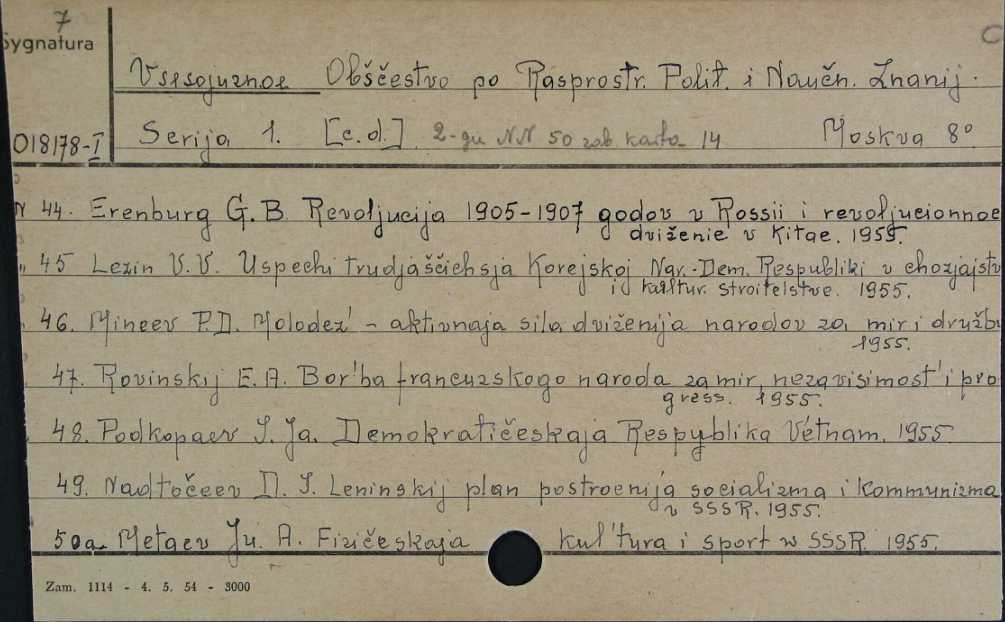 7
Sygnatura
C
Vsesojuznoe Obščestvo po Rasprostr. Polit. i Naučn. Znanij.
018178-I
Serija 1. [c.d.] 2-gu NN 50 zob karta 14 Moskva 8°
N 44. Erenburg G.B. Revoljucija 1905-1907 godov v Rossii i revoljucionnoe
dviženie v Kitae. 1955.
" 45 Lezin V.V. Uspechi trudjaščichsja Korejskoj Nar.-Dem. Respubliki v chozjajstv
i kul'tur. stroitelstve. 1955.
46. Mineev P.D. Molodež' - aktivnaja sila dviženija narodov za mir i družbu
1955.
47. Rovinskij E.A. Bor'ba francuzskogo naroda za mir, nezavisimost' i pro
gress. 1955.
48. Podkopaev I. Ja. Demokratičeskaja Respyblika Vétnam. 1955
49. Nadtočeev D. I. Leninskij plan postroenija socializma i kommunizma
v SSSR. 1955.
50a. Metaev Ju. A. Fizičeskaja kul'tura i sport w SSSR. 1955.
Zam. 1114 - 4. 5. 54 - 3000